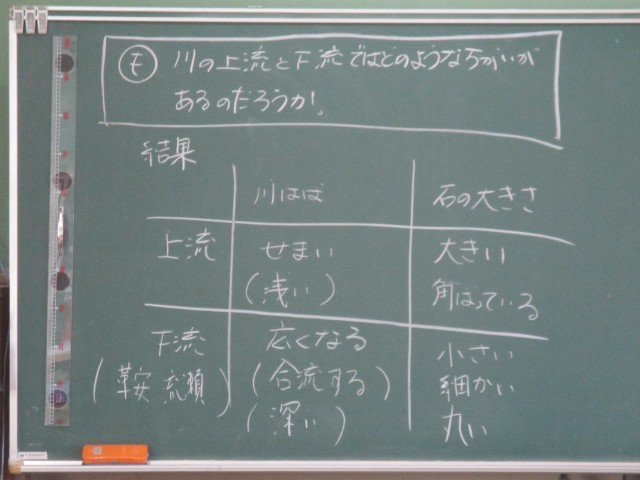 も 川の上流と下流ではどのようなちがいが
あるのだろうか。
結果
川はば 石の大きさ
上流 せまい 大きい
(浅い) 角ばっている
下流 広くなる 小さい
(合流する) 細かい
(深い) 丸い